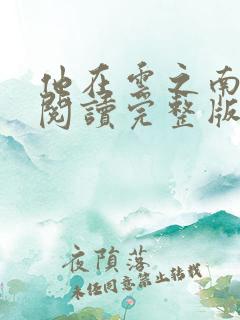 他在雲之南
閱讀完整版
夜隕落
未經同意禁止轉載